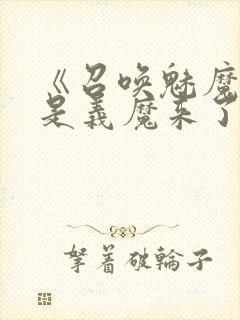 《召唤魅魔
是义魔来了
拏着破輪子